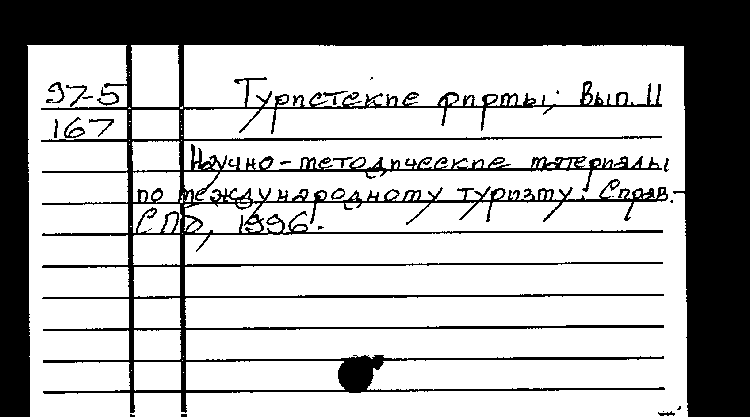 97-5 Туристские фирмы; Вып. 11
167
Научно-методические материалы
по международному туризму: Справ.-
СПб, 1996.